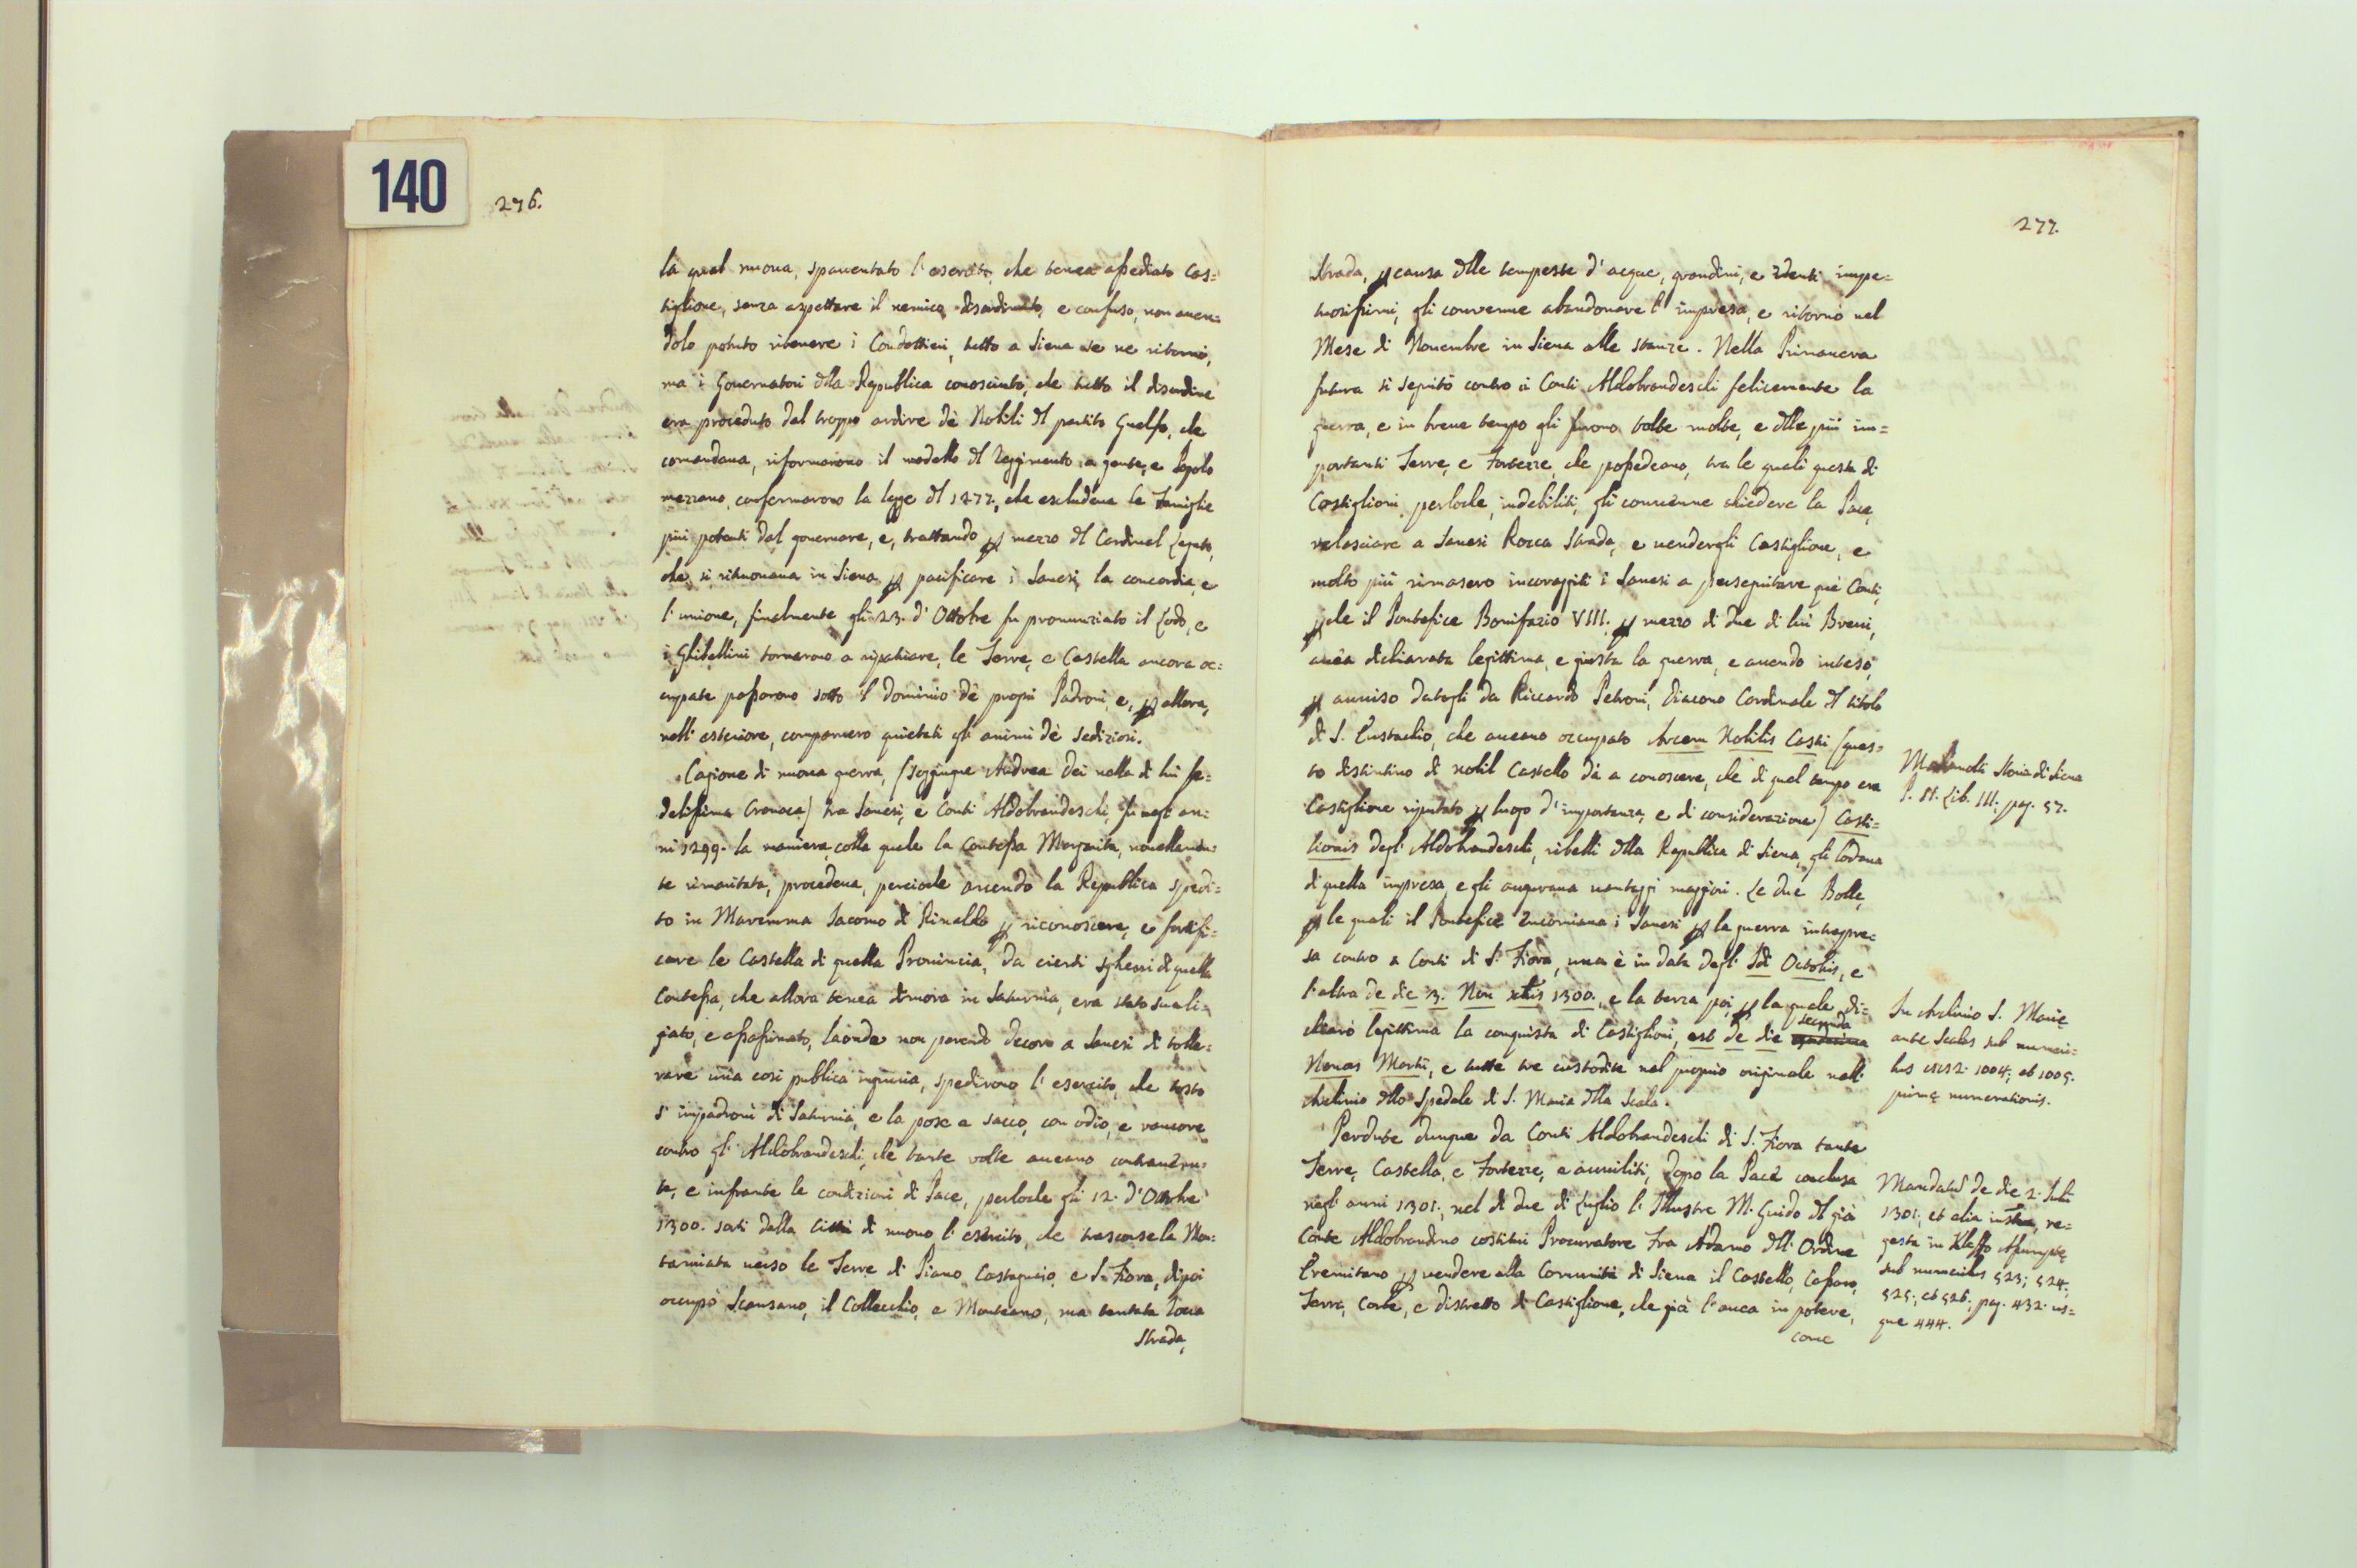 140
276.
la qual nuova, spauentato l'esercito, che tenea assediato Cas=
tiglione, senza aspettare il nemico disordinato, e confuso, non auen=
dolo potuto ritenere i Condottieri, tutto a Siena se ne ritornò,
ma i Gouernatori della Republica conosciuto, che tutto il disordine
era proceduto dal troppo ardire dè Nobili del partito Guelfo, che
comandaua, riformarono il modello del Reggimento a gente, e Popolo
mezzano, confermarono la legge del 1277, che escludeua le Famiglie
più potenti dal gouernare, e, trattando per mezzo del Cardinal Legato,
che si ritrouaua in Siena per pacificare i Sanesi, la concordia, e
l'unione, finalmente gli 23. d'Ottobre fu pronunziato il Lodo, e
i Ghibellini tornarono a ripatriare, le Terre, e Castella ancora oc=
cupate passarono sotto il dominio dè propri Padroni, e, per allora,
nell'esteriore, comparuero quietati gli animi dè sediziosi.
Cagione di nuoua guerra, (soggiugne Andrea Dei nella di lui fe=
delissima Cronaca) tra Sanesi, e Conti Aldobrandeschi, fu negl'an=
ni 1299. la maniera, colla quale la Contessa Margarita, nouellamen=
te rimaritata, procedeua, perciocle auendo la Republica spedi=
to in Maremma Iacomo di Rinaldo per riconoscere, e fortifi=
care le Castella di quella Prouincia, da cierti sgherri di quella
Contessa, che allora tenea dimora in Saturnia, era stato suali=
giato, e assassinato, laonde non parendo decoro a Sanesi di tolle=
rare una così publica ingiuria, spedirono l'esercito, che tosto
s'impadronì di Saturnia, e la pose a sacco, con odio, e rancore
contro gl'Aldobrandeschi, che tante volte aueano contrauenu=
te, e infrante le condizioni di Pace, perloche gli 12. d'Ottobre
1300. sortì dalla Città di nuouo l'esercito, che trascorse la Mon=
tamiata uerso le Terre di Piano Castagnaio, e S. Fiora, dipoi
occupò Scansano, il Collecchio, e Monteano, ma tentata Rocca
Strada,
277.
Strada, per causa delle tempeste d'acque, grandini, e Venti impe=
tuosissimi, gli conuenne abandonare l'impresa, e ritornò nel
Mese di Nouembre in Siena alle stanze. Nella Primauera
futura si seguitò contro i Conti Aldobrandeschi felicemente la
guerra, e in breue tempo gli furono tolte molte, e delle più im=
portanti Terre, e Fortezze, che possedeano, tra le quali questa di
Castiglioni, perloche, indebiliti, gli conuenne chiedere la Pace,
rilasciare a Sanesi Rocca Strada, e uendergli Castiglione, e
molto più rimasero incoraggiti i Sanesi a perseguitare què Conti,
perche il Pontefice Bonifazio VIII. per mezzo di due di lui Breui,
auea dichiarata legittima, e giusta la guerra, e auendo inteso,
per auuiso datogli da Riccardo Petroni, Diacono Cardinale del titolo
di S. Eustachio, che aueano occupato Arcem Nobilis Castri (ques=
to distintiuo di nobil Castello dà a conoscere, che di quel tempo era
Castiglione riputato per luogo d'importanza, e di considerazione) Casti=
lionis degl'Aldobrandeschi, ribelli della Republica di Siena, gli lodaua
di quella impresa, e gli auguraua uantaggi maggiori. Le due Bolle,
per le quali il Pontefice encomiaua i Sanesi per la guerra intrapre=
sa contro a Conti di S. Fiora, una è in data degl'Idi Octobris, e
l'altra de die 3. Non 1300., e la terza poi, per la quale di=
chiarò legittima la conquista di Castiglioni, est de die secunda
Nonas Martii, e tutte tre custodite nel proprio originale nell'
Archiuio dello Spedale di S. Maria della Scala.
Perdute dunque da Conti Aldobrandeschi di S. Fiora tante
Terre, Castella, e Fortezze, e auuiliti, dopo la Pace conclusa
negl'anni 1301., nel dì due di Luglio l'Illustre M. Guido del già
Conte Aldobrandino costituì Procuratore Fra Adamo dell'Ordine
Eremitano per uendere alla Comunità di Siena il Castello, Cassaro,
Terra, Corte, e distretto di Castiglione, che già l'auea in potere,
come
Malauolti Storia di Siena
P. II. Lib. III. pag. 57.
In Archiuio S. Mariȩ
ante Scalas sub numeri=
bus 1004; et 1005.
primȩ numerationis.
Mandatum de die 2. Julii
1301., et alia re=
gesta in Kleffo Assumptȩ
sub numeribus 523; 524;
525; et 526; pag. 432. us=
que 444.